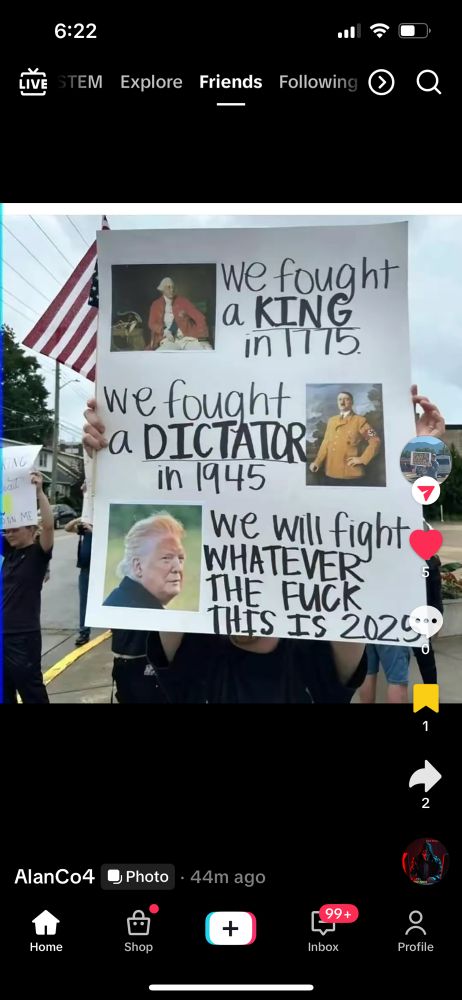 6:22
LIVE
STEM Explore Friends Following
we fought
a KING
in 1775.
we fought
a DICTATOR
in 1945
we will fight
WHATEVER
THE FUCK
THIS IS 2025
5
0
1
2
AlanCo4 Photo · 44m ago
Home
Shop
99+
Inbox
Profile